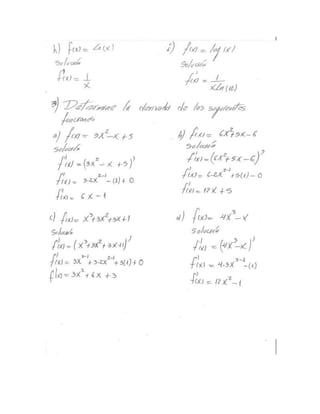 h) f(x) = Ln(x)
Solución
f'(x) = 1/x
i) f(x) = log(x)
Solución
f'(x) = 1/xLn(10)
3) Determine la derivada de las siguientes
funciones
a) f(x) = 3x² - x + 5
Solución
f'(x) = (3x² - x + 5)'
f'(x) = 3·2x²⁻¹ - (1) + 0
f'(x) = 6x - 1
b) f(x) = 6x² + 5x - 6
Solución
f'(x) = (6x² + 5x - 6)'
f'(x) = 6·2x²⁻¹ + 5(1) - 0
f'(x) = 12x + 5
c) f(x) = x³ + 3x² + 3x + 1
Solución
f'(x) = (x³ + 3x² + 3x + 1)'
f'(x) = 3x³⁻¹ + 3·2x²⁻¹ + 3(1) + 0
f'(x) = 3x² + 6x + 3
d) f(x) = 4x³ - x
Solución
f'(x) = (4x³ - x)'
f'(x) = 4·3x³⁻¹ - (1)
f'(x) = 12x² - 1